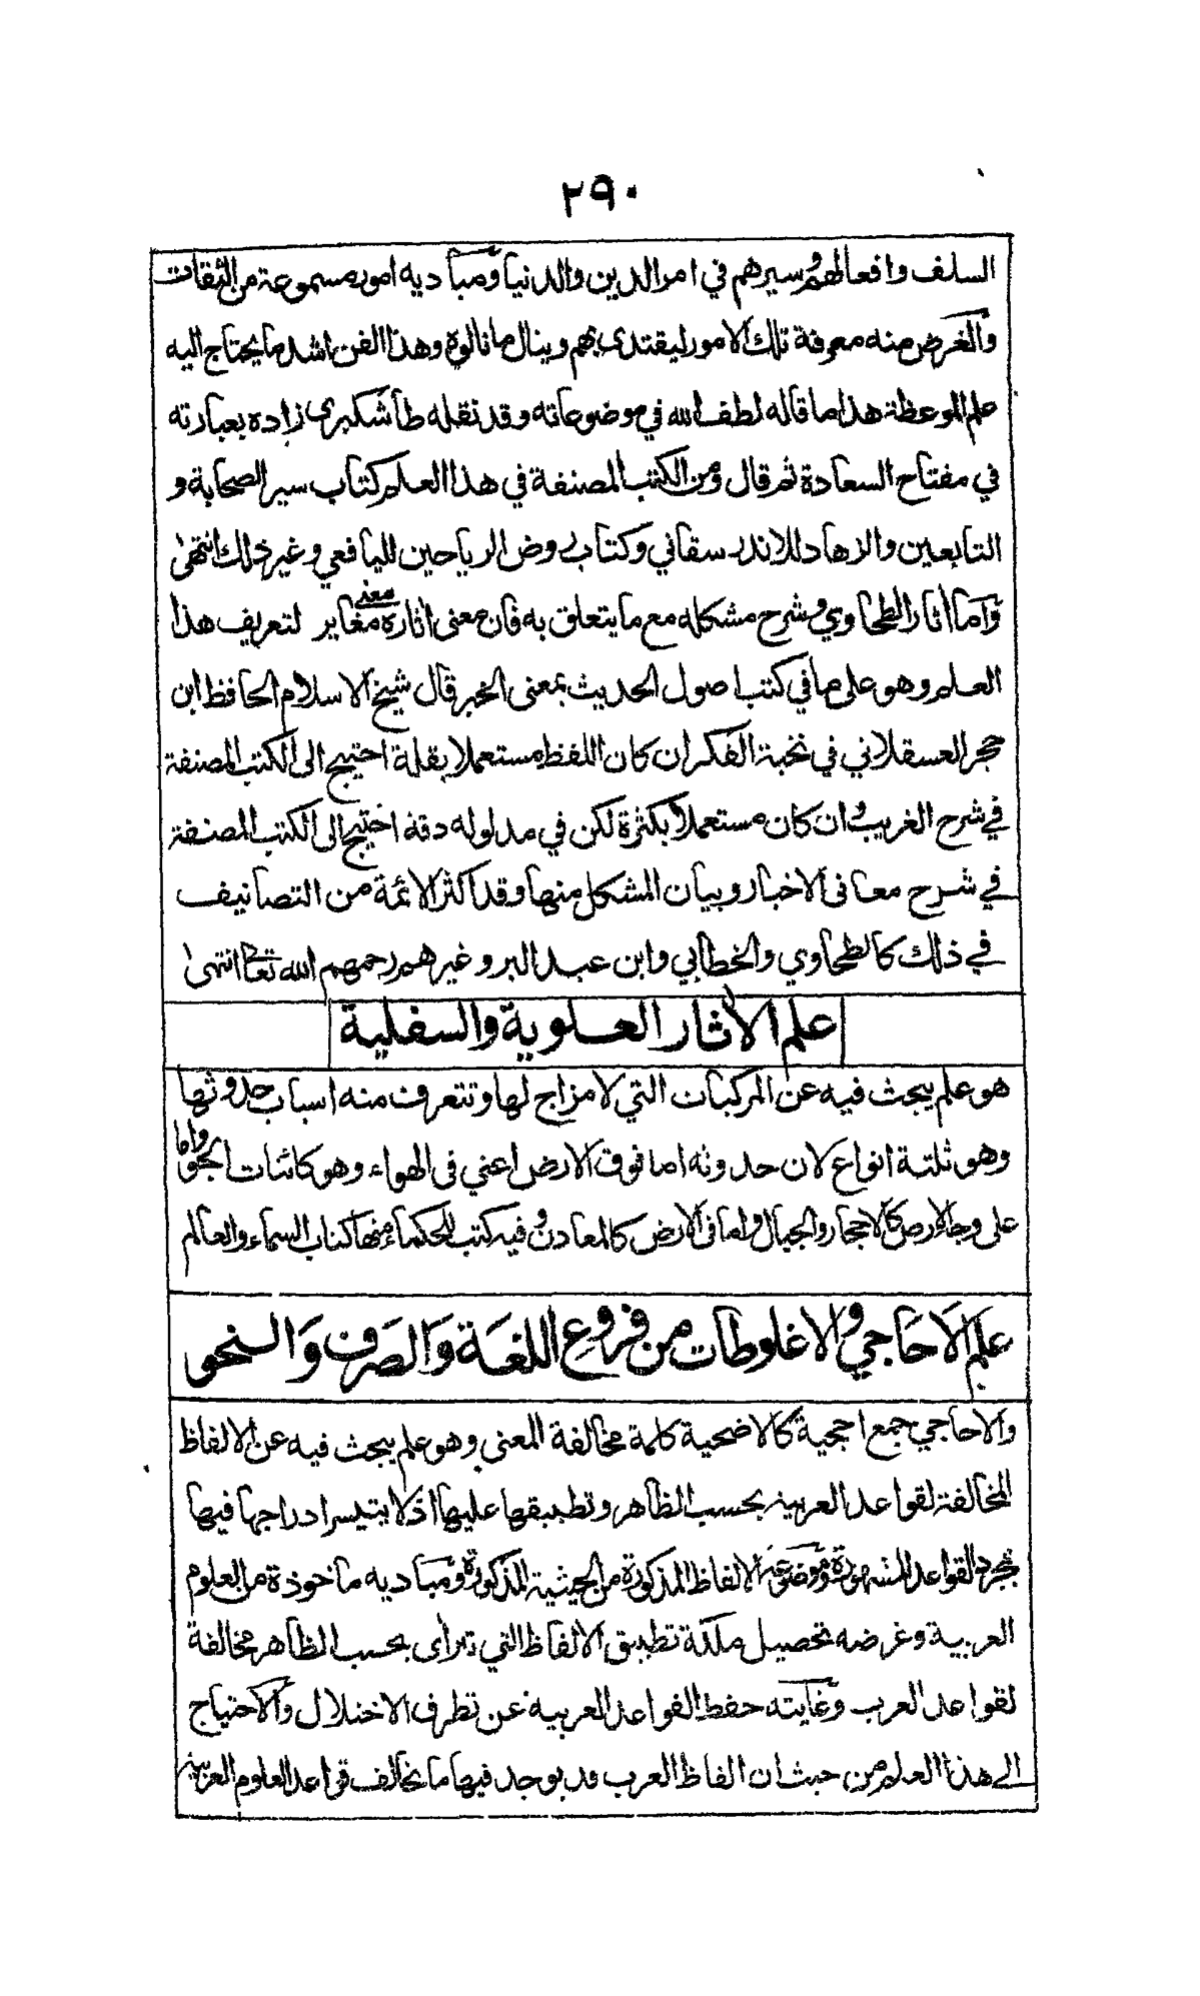 ٢٩٠
السلف وافعالهم وسيرهم في امر الدين والدنيا ومباديه امور مسموعة من الثقات
والغرض منه معرفة تلك الامور ليقتدى بهم وينال ما نالوه وهذا الفن اشد ما يحتاج اليه
علم الموعظة هذا ما قاله لطف الله في موضوعاته وقد نقله طاشكبرى زاده بعبارته
في مفتاح السعادة ثم قال ومن الكتب المصنفة في هذا العلم كتاب سير الصحابة و
التابعين والزهاد للاندرسقاني وكتاب روض الرياحين لليافعي وغير ذلك انتهى
واما اثار الطحاوي وشرح مشكله مع ما يتعلق به فان معنى اثاره معنى مغاير لتعريف هذا
العلم وهو على ما في كتب اصول الحديث بمعنى الخبر قال شيخ الاسلام الحافظ ابن
حجر العسقلاني في نخبة الفكر ان كان اللفظ مستعملا بقلة احتيج الى الكتب المصنفة
في شرح الغريب وان كان مستعملا بكثرة لكن في مدلوله دقة احتيج الى الكتب المصنفة
في شرح معانى الاخبار وبيان المشكل منها وقد اكثر الائمة من التصانيف
في ذلك كالطحاوي والخطابي وابن عبد البر وغيرهم رحمهم الله تعالى انتهى
علم الاثار العلوية والسفلية
هو علم يبحث فيه عن المركبات التي لا مزاج لها وتتعرف منه اسباب حدوثها
وهو ثلثة انواع لان حدوثه اما فوق الارض اعني فى الهواء وهو كائنات الجو واما
على وجه الارض كالاحجار والجبال واما فى الارض كالمعادن وفيه كتب للحكماء منها كتاب السماء والعالم
علم الاحاجي والاغلوطات من فروع اللغة والصرف والنحو
والاحاجي جمع احجية كالاضحية كلمة مخالفة المعنى وهو علم يبحث فيه عن الالفاظ
المخالفة لقواعد العربية بحسب الظاهر وتطبيقها عليها اذ لا يتيسر ادراجها فيها
بمجرد القواعد المشهورة وموضوعه الالفاظ المذكورة من الحيثية المذكورة ومباديه ماخوذة من العلوم
العربية وغرضه تحصيل ملكة تطبيق الالفاظ التي تتراأى بحسب الظاهر مخالفة
لقواعد العرب وغايته حفظ القواعد العربية عن تطرف الاختلال والاحتياج
الى هذا العلم من حيث ان الفاظ العرب قد يوجد فيها ما يخالف قواعد العلوم العربية